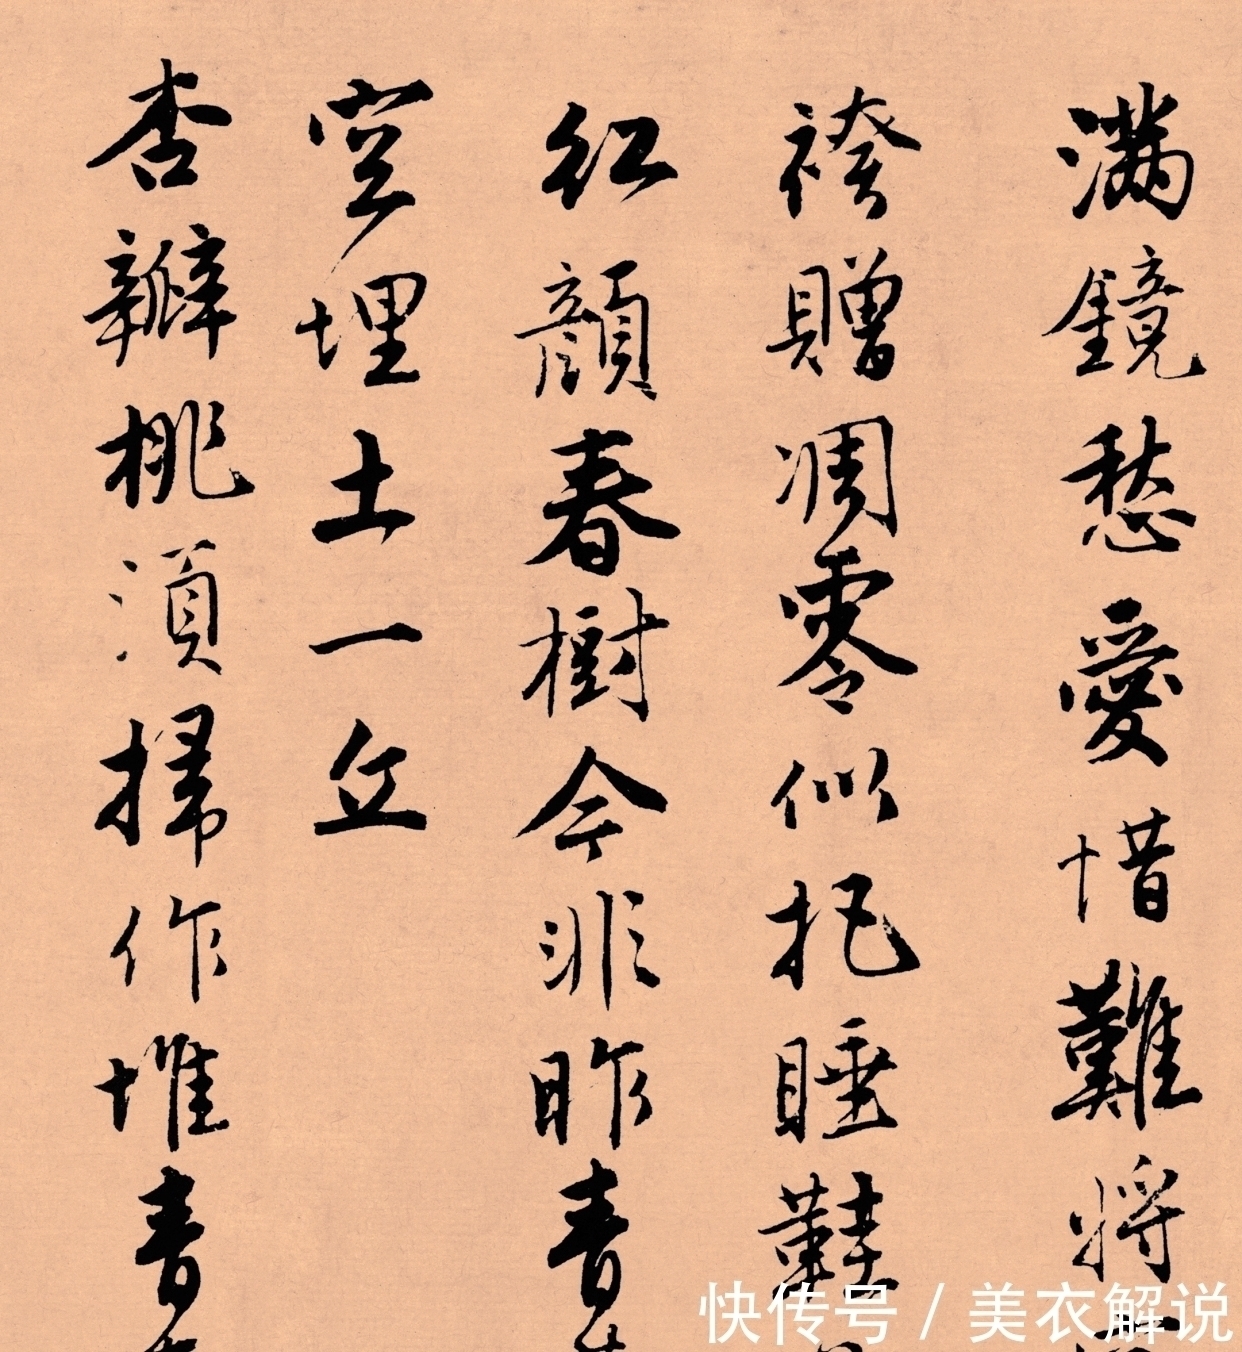 滿鏡愁愛惜難將
袴贈凋零似把睡鞋
紅顏春樹今非昨青
空埋土一丘
杏瓣桃須掃作堆青
快传号 / 美衣解说